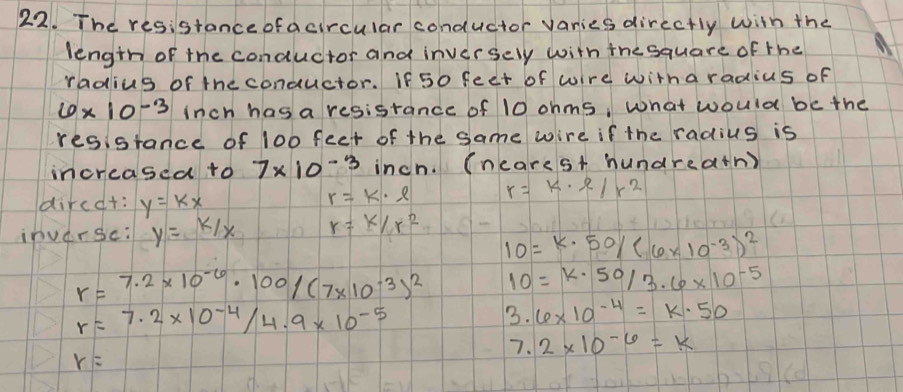 22. The resistance of a circular conductor varies directly with the
length of the conductor and inversely with the square of the
radius of the conductor. If 50 feet of wire with a radius of
6x10-³ inch has a resistance of 10 ohms, what would be the
resistance of 100 feet of the same wire if the radius is
increased to 7x10-³ inch. (nearest hundreath)
direct: y=kx r=k·l r=k·l/r²
inverse: y=k/x r=k/r²
10=k·50/(6x10-³)²
r=7.2x10-⁶·100/(7x10-³)² 10=k·50/3.6x10-⁵
r=7.2x10-⁴/4.9x10-⁵ 3.6x10-⁴=k·50
r= 7.2x10-⁶=k